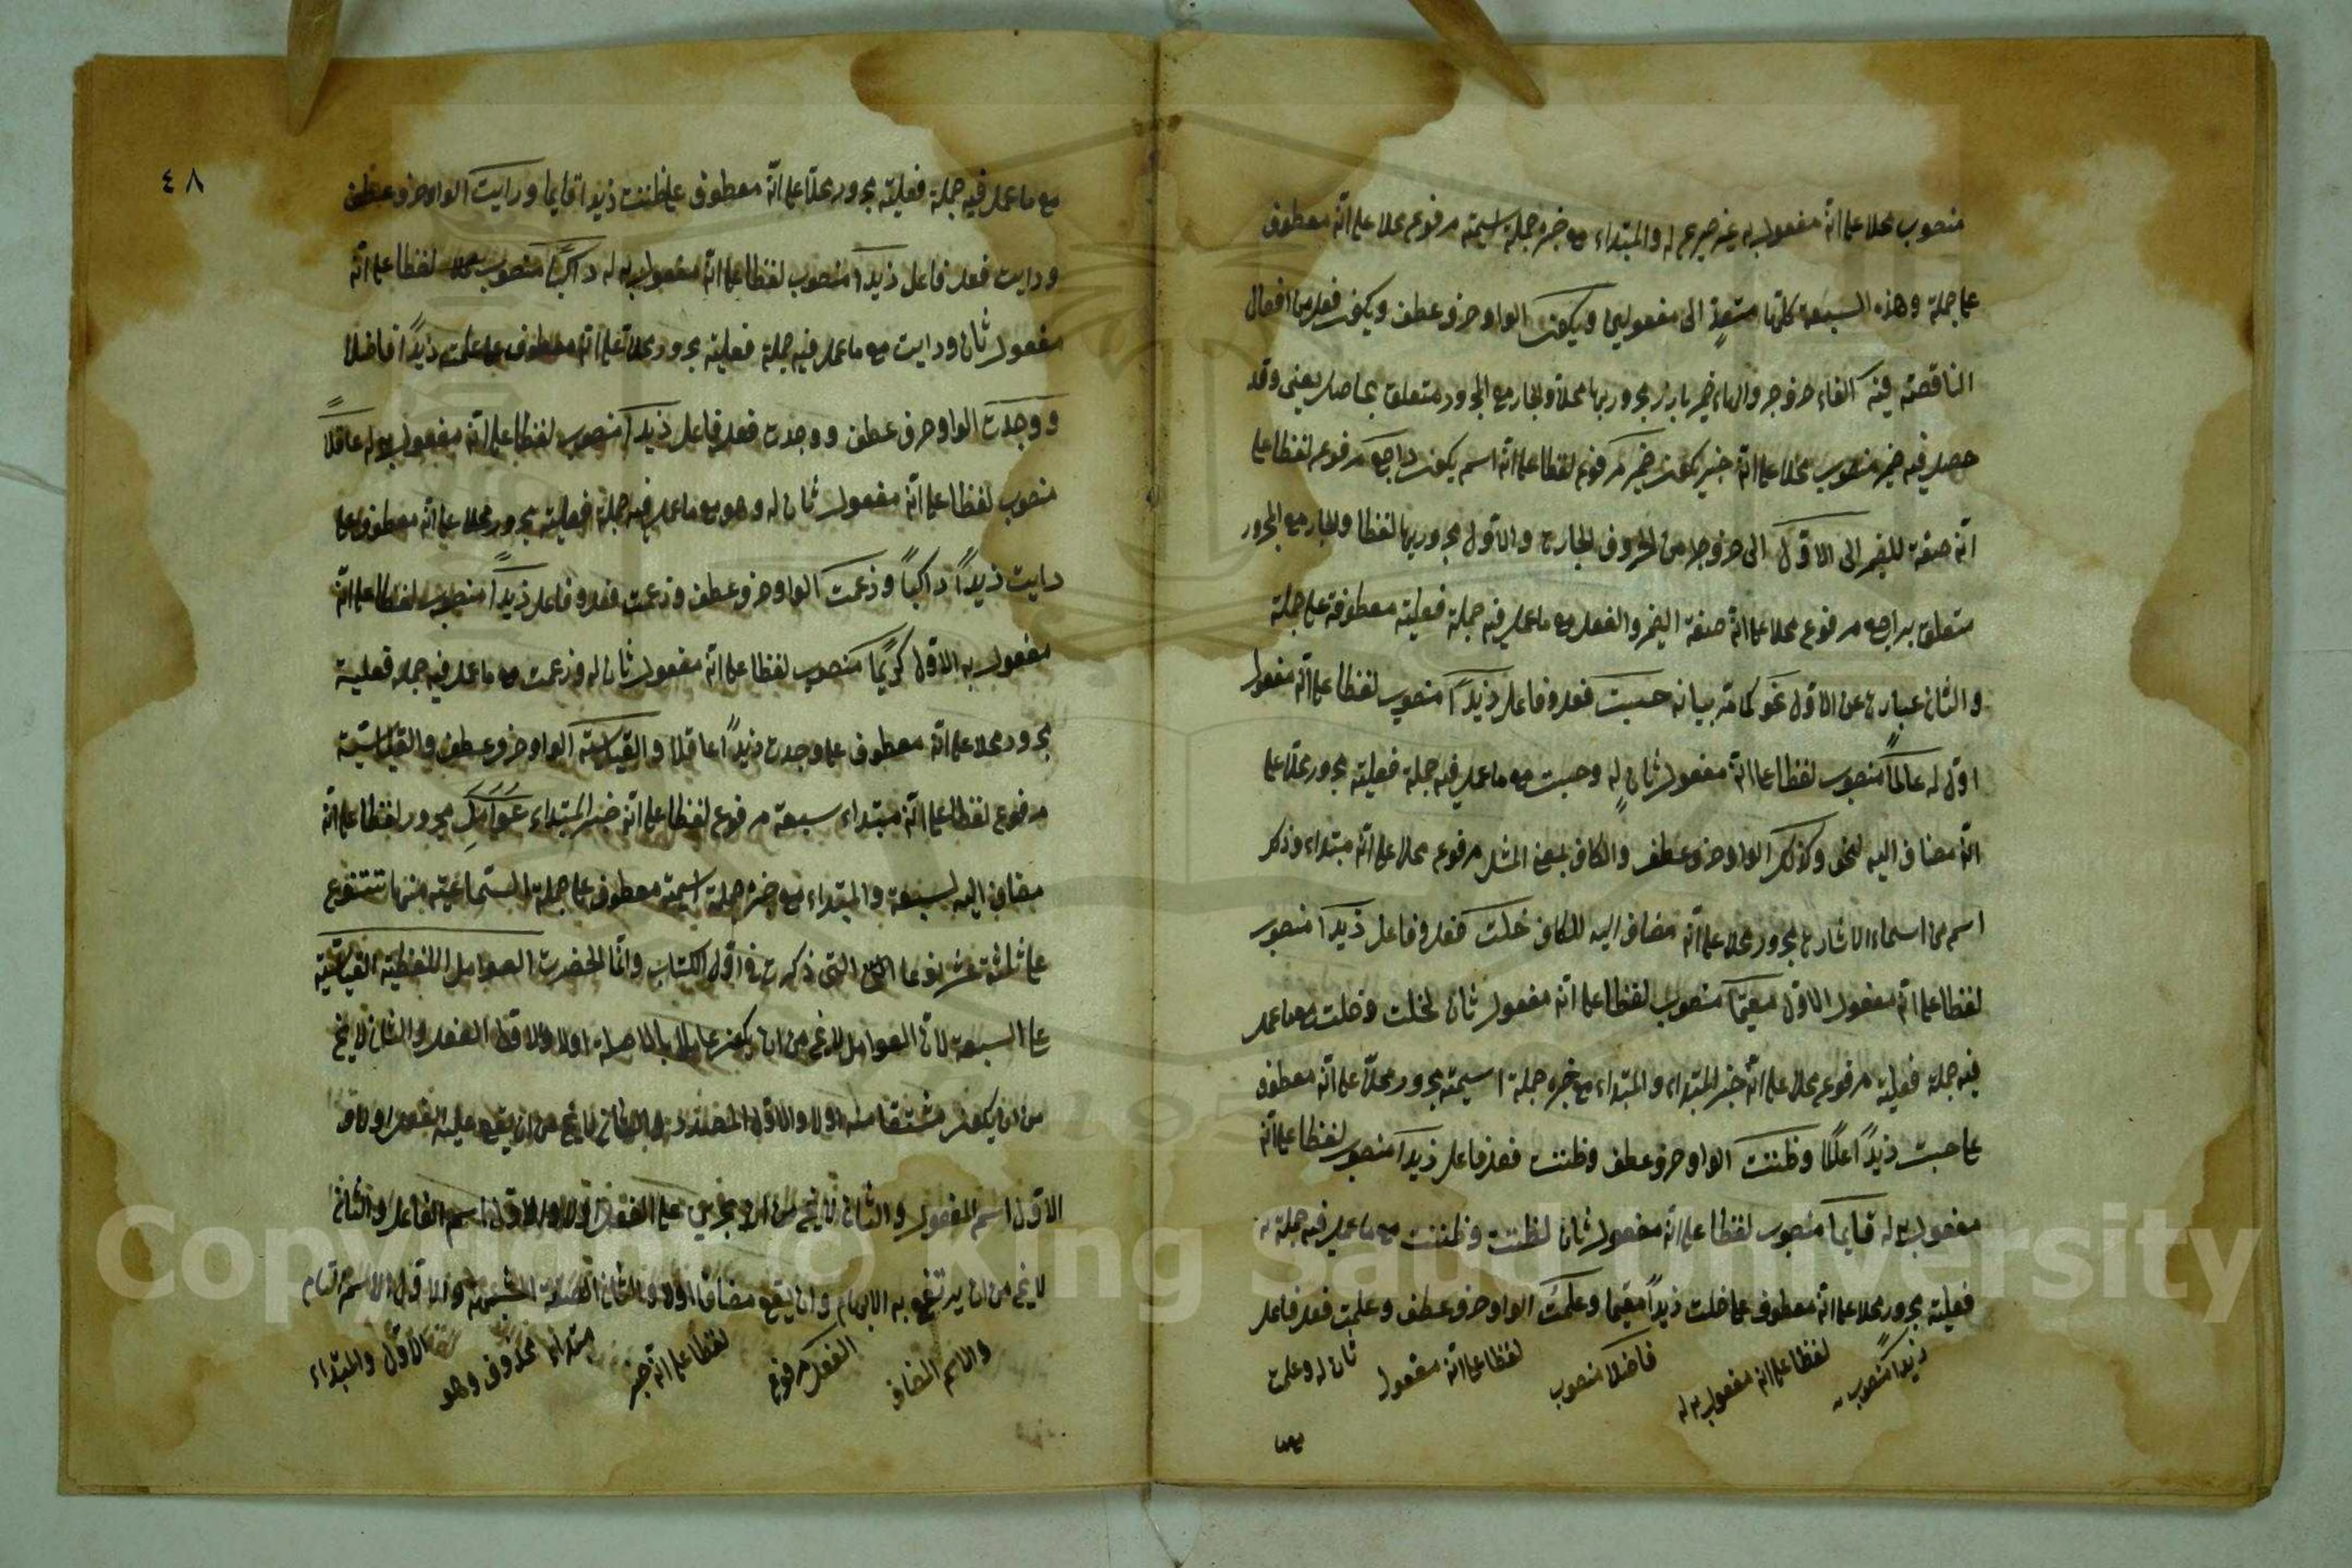 منصوب محلا على انّه مفعول به غير صريح له والمبتداء مع خبره جملة اسمية مرفوع محلا على انّه معطوف
على جملة وهذه السبعة كلّها متعدّ الى مفعولين ويكون الواو حرف عطف ويكون فعل من افعال
الناقصة فيه الفاء حرف جر والهاء ضمير بارز مجرور بها محلا والجار مع المجرور متعلق بحاصل يعنى وقد
حصل فيه ضمير منصوب محلا على انّه خبر يكون ضمير مرفوع لفظا على انّه اسم يكون راجع مرفوع لفظا على
انّه صفة للضمير الى الاوّل الى حرف جر من الحروف الجارة والاوّل مجرور بها لفظا والجار مع المجرور
متعلق براجع مرفوع محلا على انّه صفة الضمير والفعل مع ما عمل فيه جملة فعلية معطوفة على جملة
والثانى عبارة عن الاوّل نحو كما مرّ بيانه حسبت فعل وفاعل زيداً منصوب لفظا على انّه مفعول
اوّل له عالماً منصوب لفظا على انّه مفعول ثانٍ له وحسبت مع ما عمل فيه جملة فعلية مجرور محلا على
انّه مضاف اليه لنحو وكذلك الواو حرف عطف والكاف بمعنى المثل مرفوع محلا على انّه مبتداء وذلك
اسم من اسماء الاشارة مجرور محلا على انّه مضاف اليه للكاف خلت فعل وفاعل زيداً منصوب
لفظا على انّه مفعول الاوّل مقيمًا منصوب لفظا على انّه مفعول ثان لخلت وخلت مع ما عمل
فيه جملة فعلية مرفوع محلا على انّه خبر المبتداء والمبتداء مع خبره جملة اسمية مجرور محلا على انّه معطوف
على حسبت زيداً عالمًا وظننت الواو حرف عطف وظننت فعل فاعل زيداً منصوب لفظا على انّه
مفعول به له قايما منصوب لفظا على انّه مفعول ثان لظننت وظننت مع ما عمل فيه جملة
فعلية مجرور محلا على انّه معطوف على خلت زيداً مقيما وعلمت الواو حرف عطف وعلمت فعل فاعل
زيداً منصوب لفظا على انّه مفعول به له فاضلا منصوب لفظا على انّه مفعول ثان له وعلمت
مع ما
٤٨
مع ما عمل فيه جملة فعلية مجرور محلا على انّه معطوف على ظننت زيدا قايما ورايت الواو حرف عطف
ورايت فعل فاعل زيداً منصوب لفظا على انّه مفعول به له راكبًا منصوب لفظا على انّه
مفعول ثان ورايت مع ما عمل فيه جملة فعلية مجرور محلا على انّه معطوف على علمت زيداً فاضلا
ووجدت الواو حرف عطف ووجدت فعل فاعل زيداً منصوب لفظا على انّه مفعول به له عاقلاً
منصوب لفظا على انّه مفعول ثان له وهو مع ما عمل فيه جملة فعلية مجرور محلا على انّه معطوف على
رايت زيداً راكباً وزعمت الواو حرف عطف وزعمت فعل وفاعل زيداً منصوب لفظا على انّه
مفعول به الاوّل كريمًا منصوب لفظا على انّه مفعول ثان له وزعمت مع ما عمل فيه جملة فعلية
مجرور محلا على انّه معطوف على وجدت زيداً عاقلا والقياسية الواو حرف عطف والقياسية
مرفوع لفظا على انّه مبتداء سبعة مرفوع لفظا على انّه خبر المبتداء عوامل مجرور لفظا على انّه
مضاف اليه لسبعة والمبتداء مع خبره جملة اسمية معطوف على جملة السماعية منها تتنوع
على ثلثة عشر نوعا التى ذكرت فى اوّل الكتاب وانّما انحصرت العوامل اللفظية القياسية
على السبعة لانّ العوامل لا يخ من ان يكون عاملا بالاصالة اولا والاوّل الفعل والثانى لا يخ
من ان يكون مشتقا منه اولا والاوّل المصدر لا يخ من ان يقع عليه الفعل اولا و
الاوّل اسم المفعول والثانى لا يخ من ان يجرى على الفعل اولا والاوّل اسم الفاعل والثانى
لا يخ من ان يرتفع به الابهام وان يقع مضافا اولا والثانى الصفة المشبهة والاوّل الاسم التام
والاسم المضاف الفعل مرفوع لفظا على انّه خبر مبتداء محذوف وهو الاوّل والمبتداء